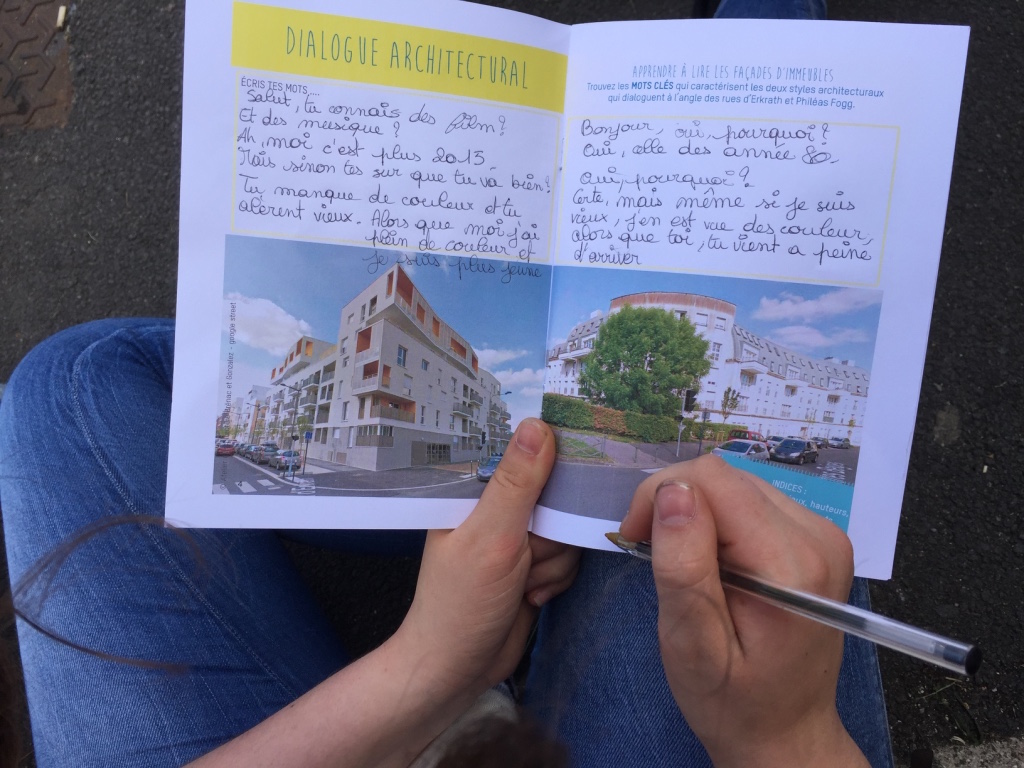 DIALOGUE ARCHITECTURAL
ÉCRIS TES MOTS....
Salut, tu connais des film?
Et des meusique?
Ah, moi c'est plus 2013.
Mais sinon tes sur que tu va bien?
Tu manque de couleux et tu
aterent vieux. Alors que moi j'ai
plein de couleur et
je suis plus jeune
et Gonzalez - google street
APPRENDRE À LIRE LES FAÇADES D'IMMEUBLES
Trouvez les MOTS CLÉS qui caractérisent les deux styles architecturaux
qui dialoguent à l'angle des rues d'Erkrath et Philéas Fogg.
Bonjour, oui, pourquoi?
Oui, celle des année 80.
oui, pourquoi?
Certe, mais même si je suis
vieux, j'en est vue des couleur,
alors que toi, tu vient a peine
d'arriver
INDICES :
hauteurs,